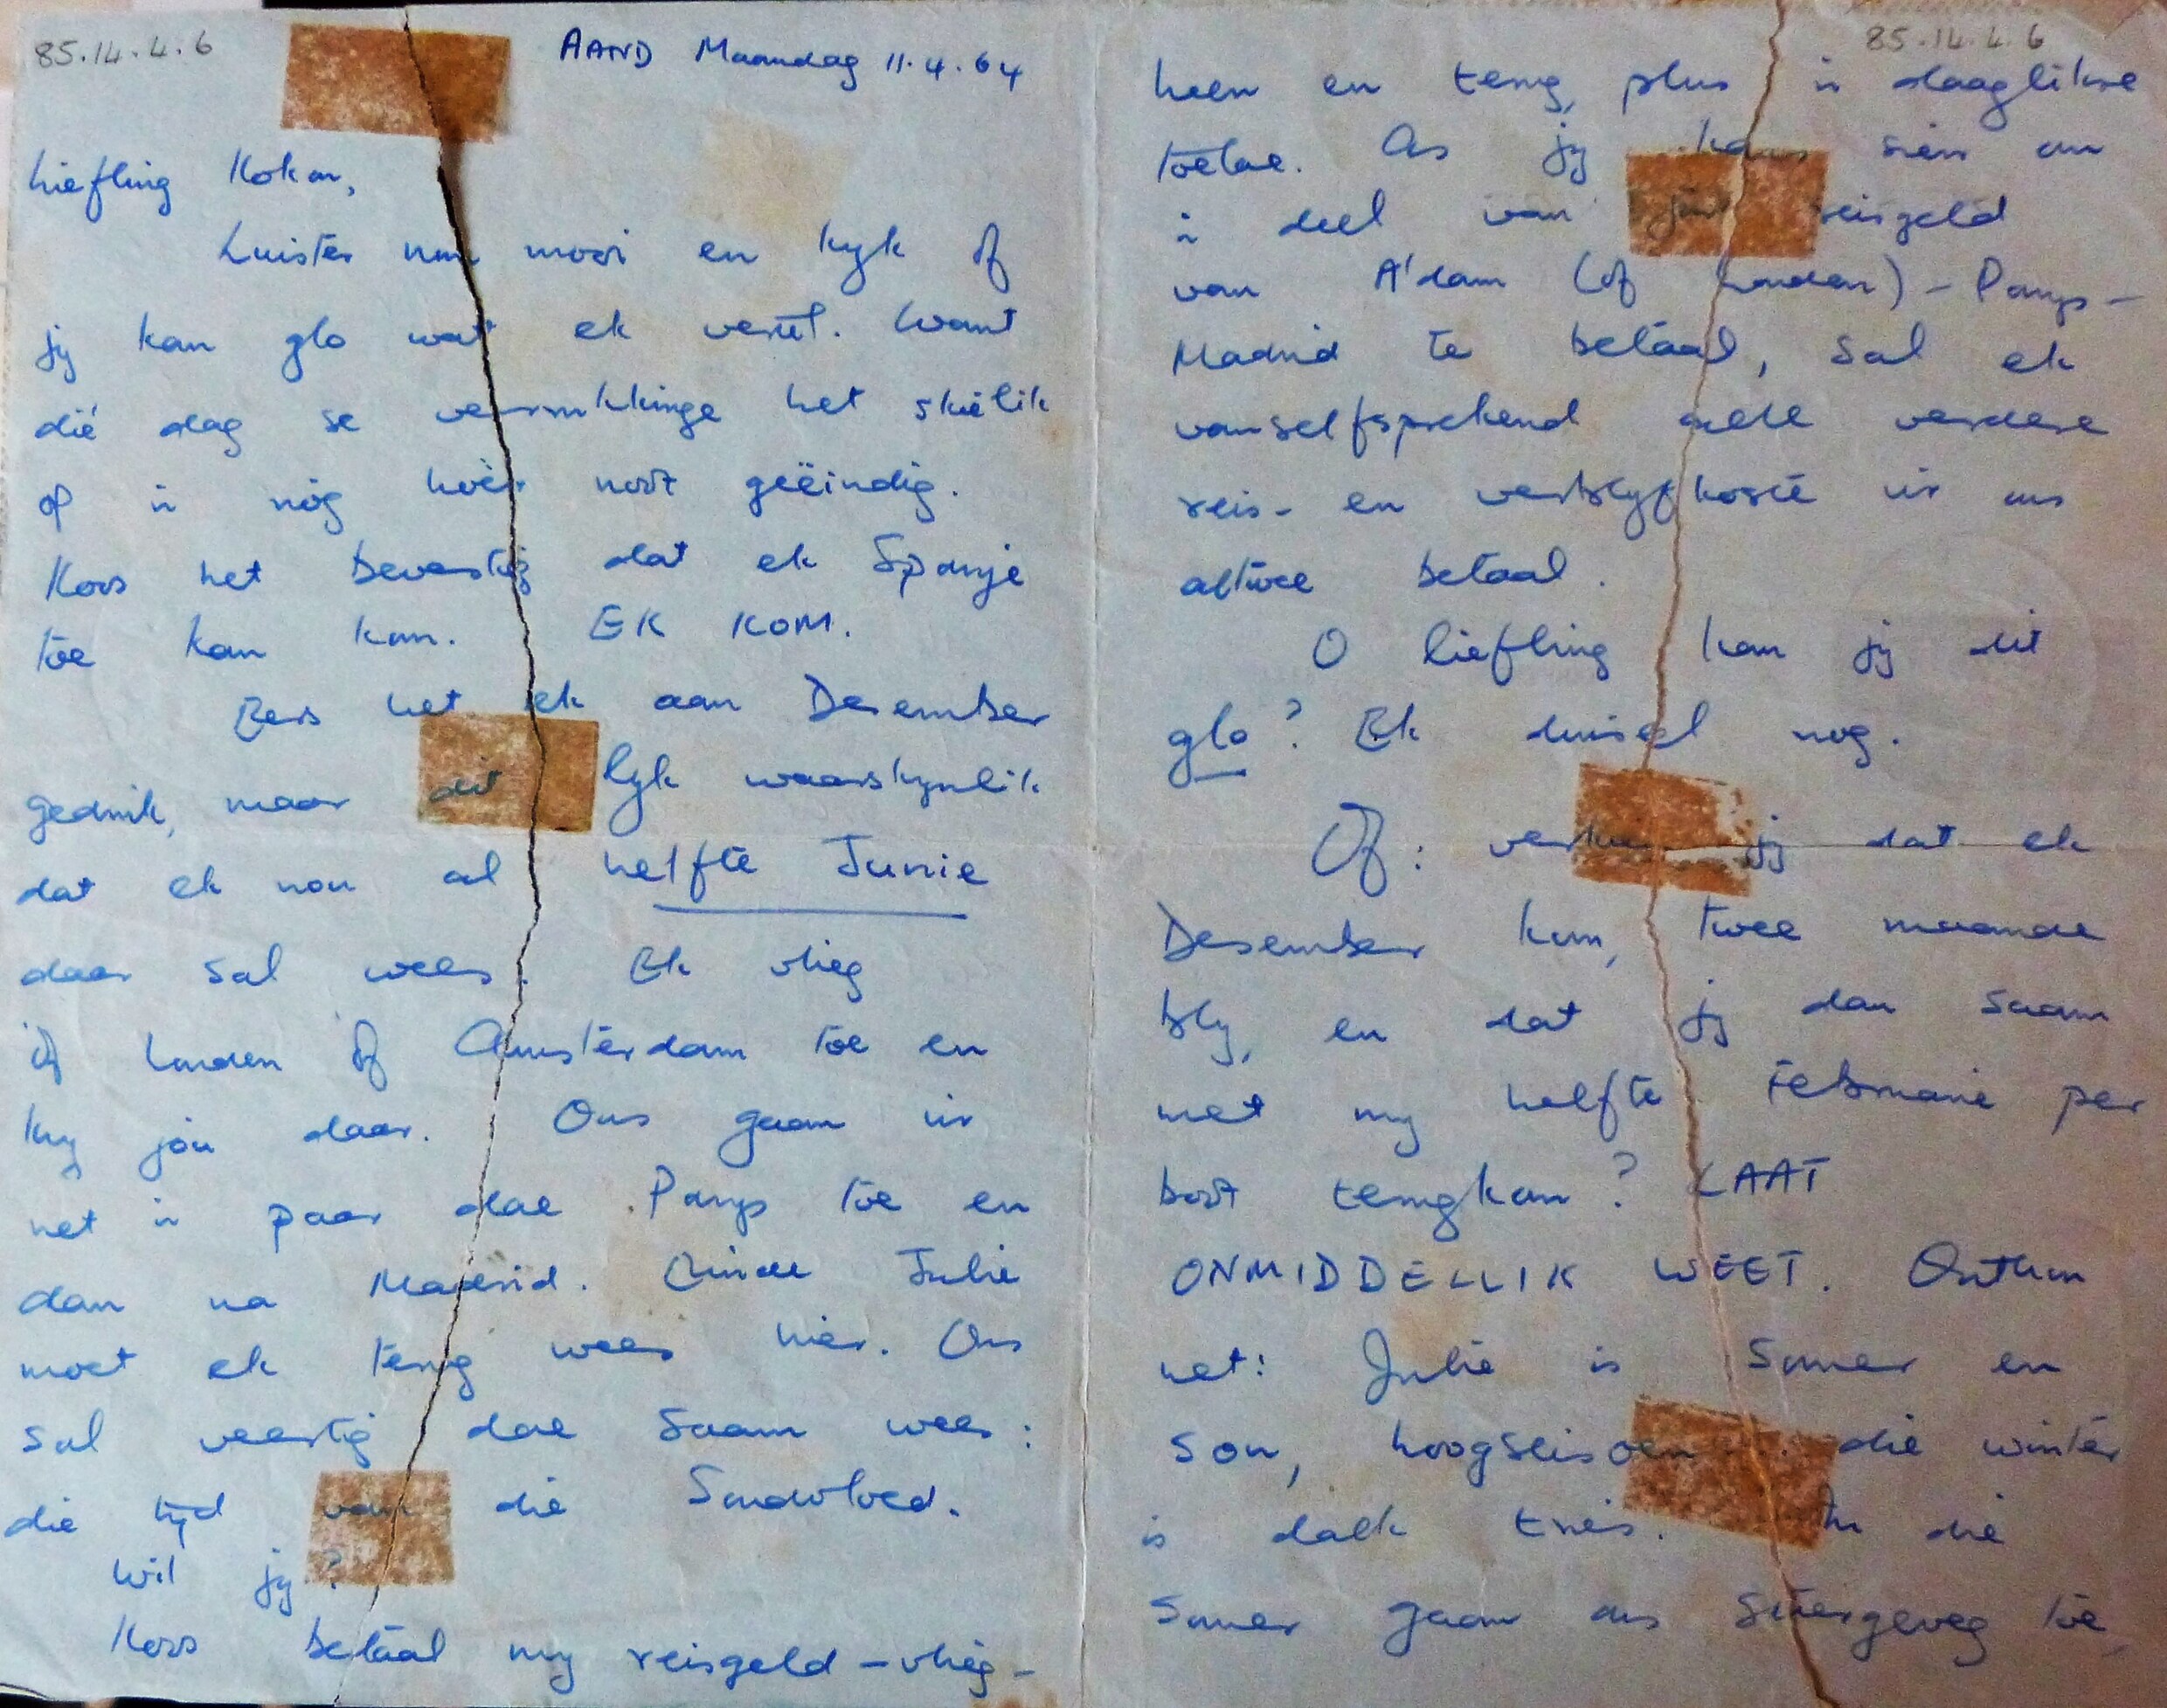 85.14.4.6
AAND Maandag 11.4.64
Liefling Kokon,
Luister nou mooi en kyk of
jy kan glo wat ek vertel. Want
dié dag se verrukkinge het skielik
op 'n nóg hoër noot geëindig.
Koos het bevestig dat ek Spanje
toe kan kom. EK KOM.
Eers het ek aan Desember
gedink, maar dit lyk waarskynlik
dat ek nou al helfte Junie
daar sal wees. Ek vlieg
óf Londen óf Amsterdam toe en
kry jóú daar. Ons gaan vir
net 'n paar dae Parys toe en
dan na Madrid. Einde Julie
moet ek terug wees hier. Ons
sal veertig dae saam wees:
die tyd van die Sondvloed.
Wil jy?
Koos betaal my reisgeld – vlieg –
85.14.4.6
heen en terug, plus 'n daaglikse
toelae. As jy kans sien om
'n deel van jou reisgeld
van A'dam (of Londen) – Parys –
Madrid te betaal, sal ek
vanselfsprekend alle verdere
reis- en verblyfkoste vir ons
altwee betaal.
O liefling kan jy dit
glo? Ek duisel nog.
Óf: verkies jy dat ek
Desember kom, twee maande
bly, en dat jy dan saam
met my helfte Februarie per
boot terugkom? LAAT
ONMIDDELLIK WEET. Onthou
net: Julie is somer en
son, hoogseisoen. die winter
is dalk triés. In die
somer gaan ons stiergeveg toe,